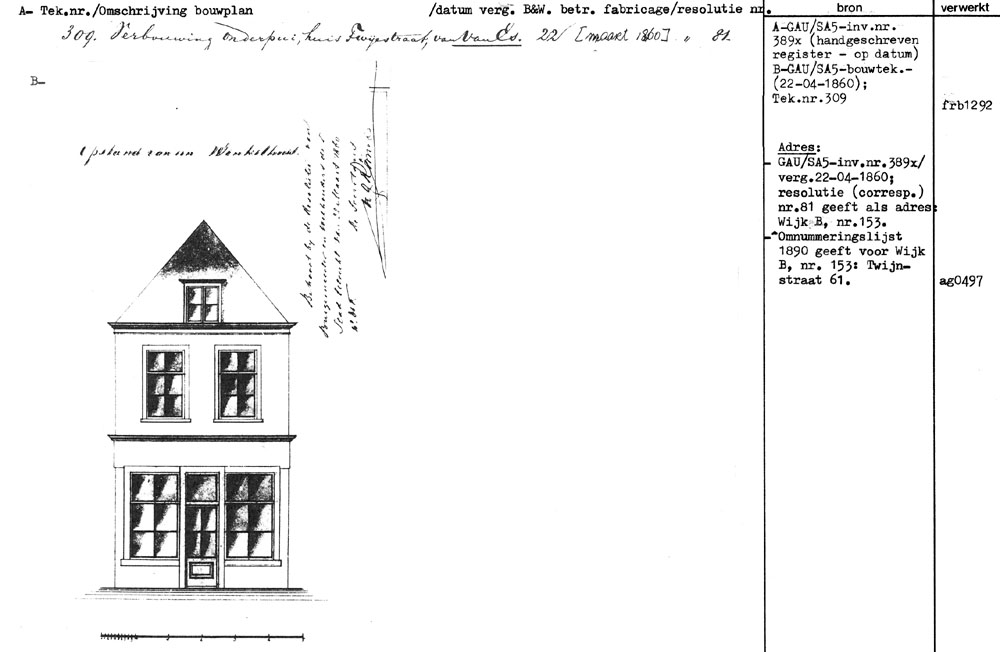 A- Tek.nr./Omschrijving bouwplan /datum verg. B&W. betr. fabricage/resolutie nr.
309. Verbouwing onderpui, huis Twijnstraat, van van Es. 22 [maart 1860] " 81
B-
Opstand van een Winkelhuis.
Behoort bij de Resolutie van
Burgemeester en Wethouders der
Stad Utrecht van 22 Maart 1860
No. 81
De Secretaris
bron
A-GAU/SA5-inv.nr.
389x (handgeschreven
register - op datum)
B-GAU/SA5-bouwtek.-
(22-04-1860);
Tek.nr.309
Adres:
- GAU/SA5-inv.nr.389x/
verg.22-04-1860;
resolutie (corresp.)
nr.81 geeft als adres:
Wijk B, nr.153.
- Omnummeringslijst
1890 geeft voor Wijk
B, nr. 153: Twijn-
straat 61.
verwerkt
frb1292
ag0497